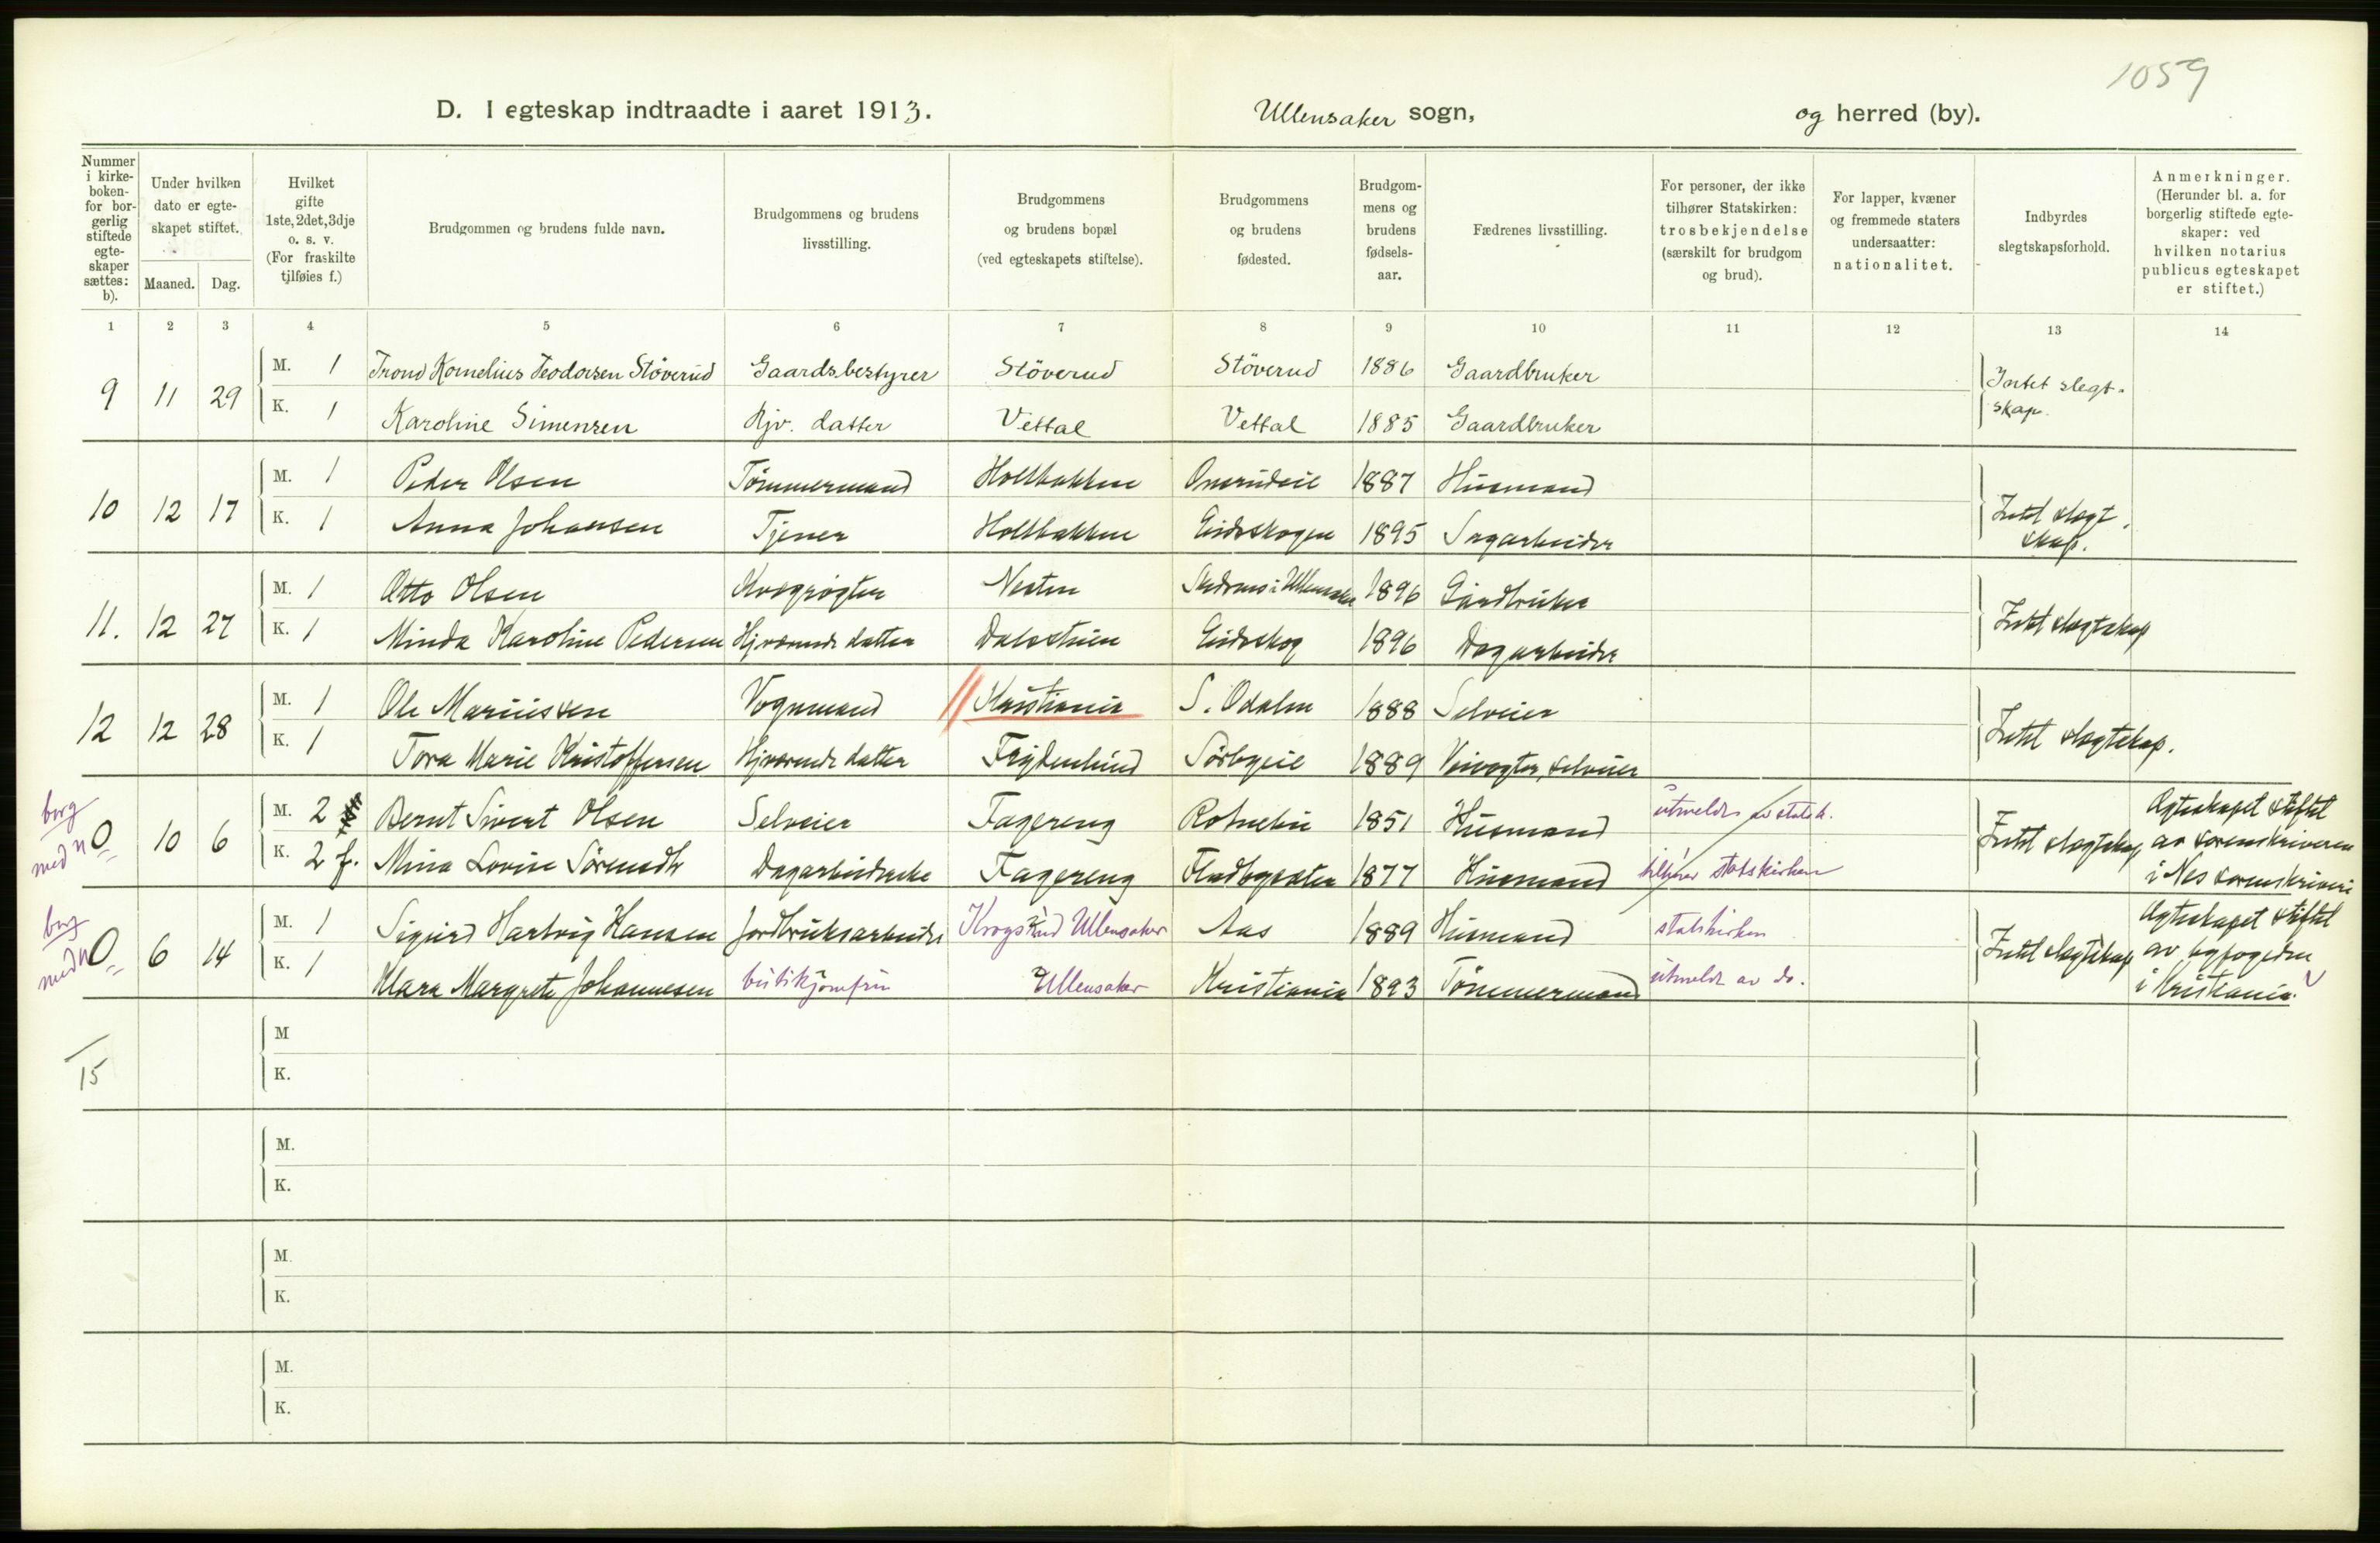 1059
D. I egteskap indtraadte i aaret 1913. Ullensaker sogn, og herred (by).
Nummer i kirkeboken- for borgerlig stiftede egteskaper sættes: b).
Under hvilken dato er egteskapet stiftet.
Maaned. Dag.
Hvilket gifte 1ste, 2det, 3dje o. s. v. (For fraskilte tilføies f.)
Brudgommen og brudens fulde navn.
Brudgommens og brudens livsstilling.
Brudgommens og brudens bopæl (ved egteskapets stiftelse).
Brudgommens og brudens fødested.
Brudgommens og brudens fødselsaar.
Fædrenes livsstilling.
For personer, der ikke tilhører Statskirken: trosbekjendelse (særskilt for brudgom og brud).
For lapper, kvæner og fremmede staters undersaatter: nationalitet.
Indbyrdes slegtskapsforhold.
Anmerkninger. (Herunder bl. a. for borgerlig stiftede egteskaper: ved hvilken notarius publicus egteskapet er stiftet.)
1 2 3 4 5 6 7 8 9 10 11 12 13 14
9 11 29 M. 1 Trond Kornelius Teodorsen Støverud Gaardsbestyrer Støverud Støverud 1886 Gaardbruker Intet slegtskap.
K. 1 Karoline Simensen Hjv. datter Vettal Vettal 1885 Gaardbruker
10 12 17 M. 1 Peder Olsen Tømmermand Holtbakken 1887 Husmand Intet slegtskap.
K. 1 Anna Johansen Tjener Holtbakken Eidskogen 1895 Sagarbeider
11. 12 27 M. 1 Otto Olsen Kvægrøgter Nesten i Ullensaker 1896 Gårdbruker Intet slegtskap
K. 1 Minda Karoline Pedersen Hjværende datter Dalstuen Eidskog 1896 Dagarbeider
12 12 28 M. 1 Ole Mariussen Vognmand Kristiania S. Odalen 1888 Selveier Intet slegtskap.
K. 1 Tora Marie Kristoffersen Hjværende datter Frydenlund Sørbyeie 1889 Veivogter, selveier
borg med n 0 10 6 M. 2 Bernt Sivert Olsen Selveier Fagereng 1851 Husmand utmeldt av statsk. Intet slegtskap Ægteskapet stiftet
K. 2 f. Mina Lovise Sørensdtr Dagarbeiderske Fagereng 1877 Husmand tilhører statskirken av sorenskriveren
i Nes sorenskriveri
borg med n 0 6 14 M. 1 Sigurd Hartvig Hansen Jordbruksarbeider Krogsrud Ullensaker Aas 1889 Husmand statskirken Intet slegtskap Ægteskapet stiftet
K. 1 Klara Margrete Johannesen butikjomfru Ullensaker Kristiania 1893 Tømmermand utmeldt av do. av byfogeden
i Kristiania.
15
M
K.
M.
K.
M.
K.
M.
K.